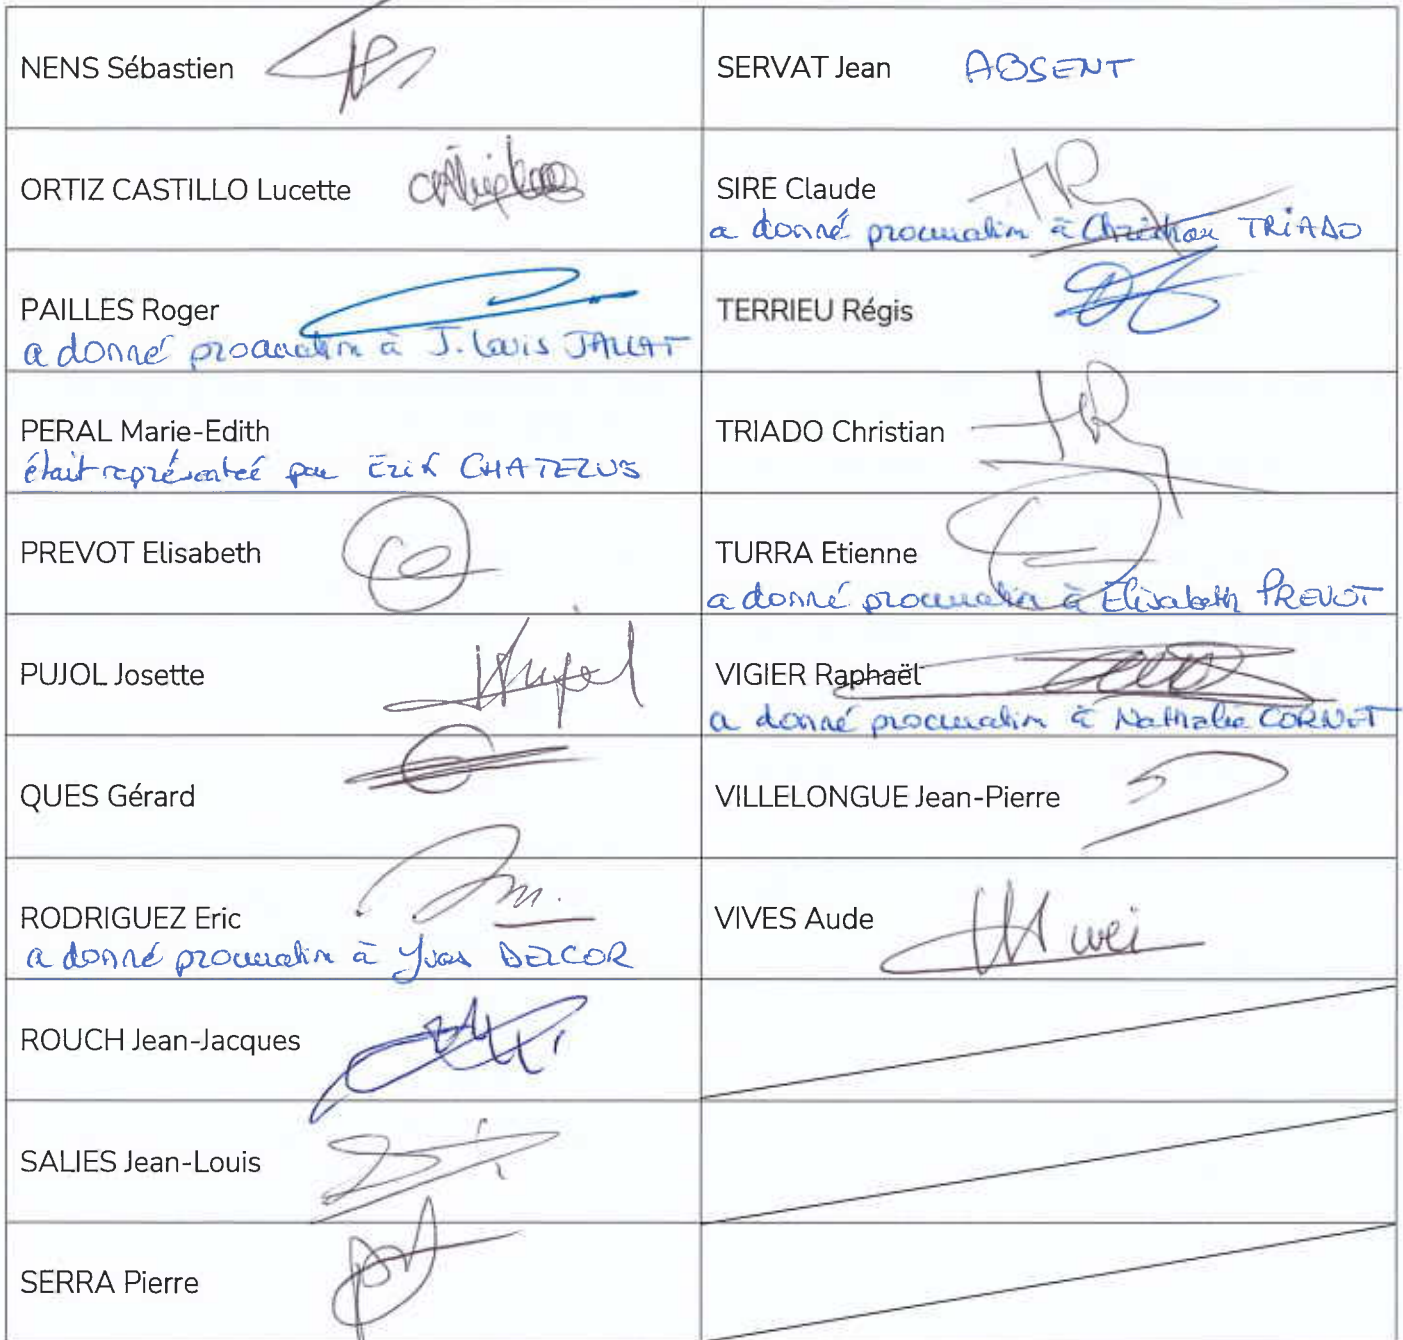 NENS Sébastien
SERVAT Jean ABSENT
ORTIZ CASTILLO Lucette
SIRE Claude
a donné procuration à Christian TRIADO
PAILLES Roger
a donné procuration à J. Louis JALLAT
TERRIEU Régis
PERAL Marie-Edith
était représenteé par Erik CHATELUS
TRIADO Christian
PREVOT Elisabeth
TURRA Etienne
a donné procuration à Elisabeth PREVOT
PUJOL Josette
VIGIER Raphaël
a donné procuration à Nathalie CORNET
QUES Gérard
VILLELONGUE Jean-Pierre
RODRIGUEZ Eric
a donné procuration à Yves DELCOR
VIVES Aude
ROUCH Jean-Jacques
SALIES Jean-Louis
SERRA Pierre